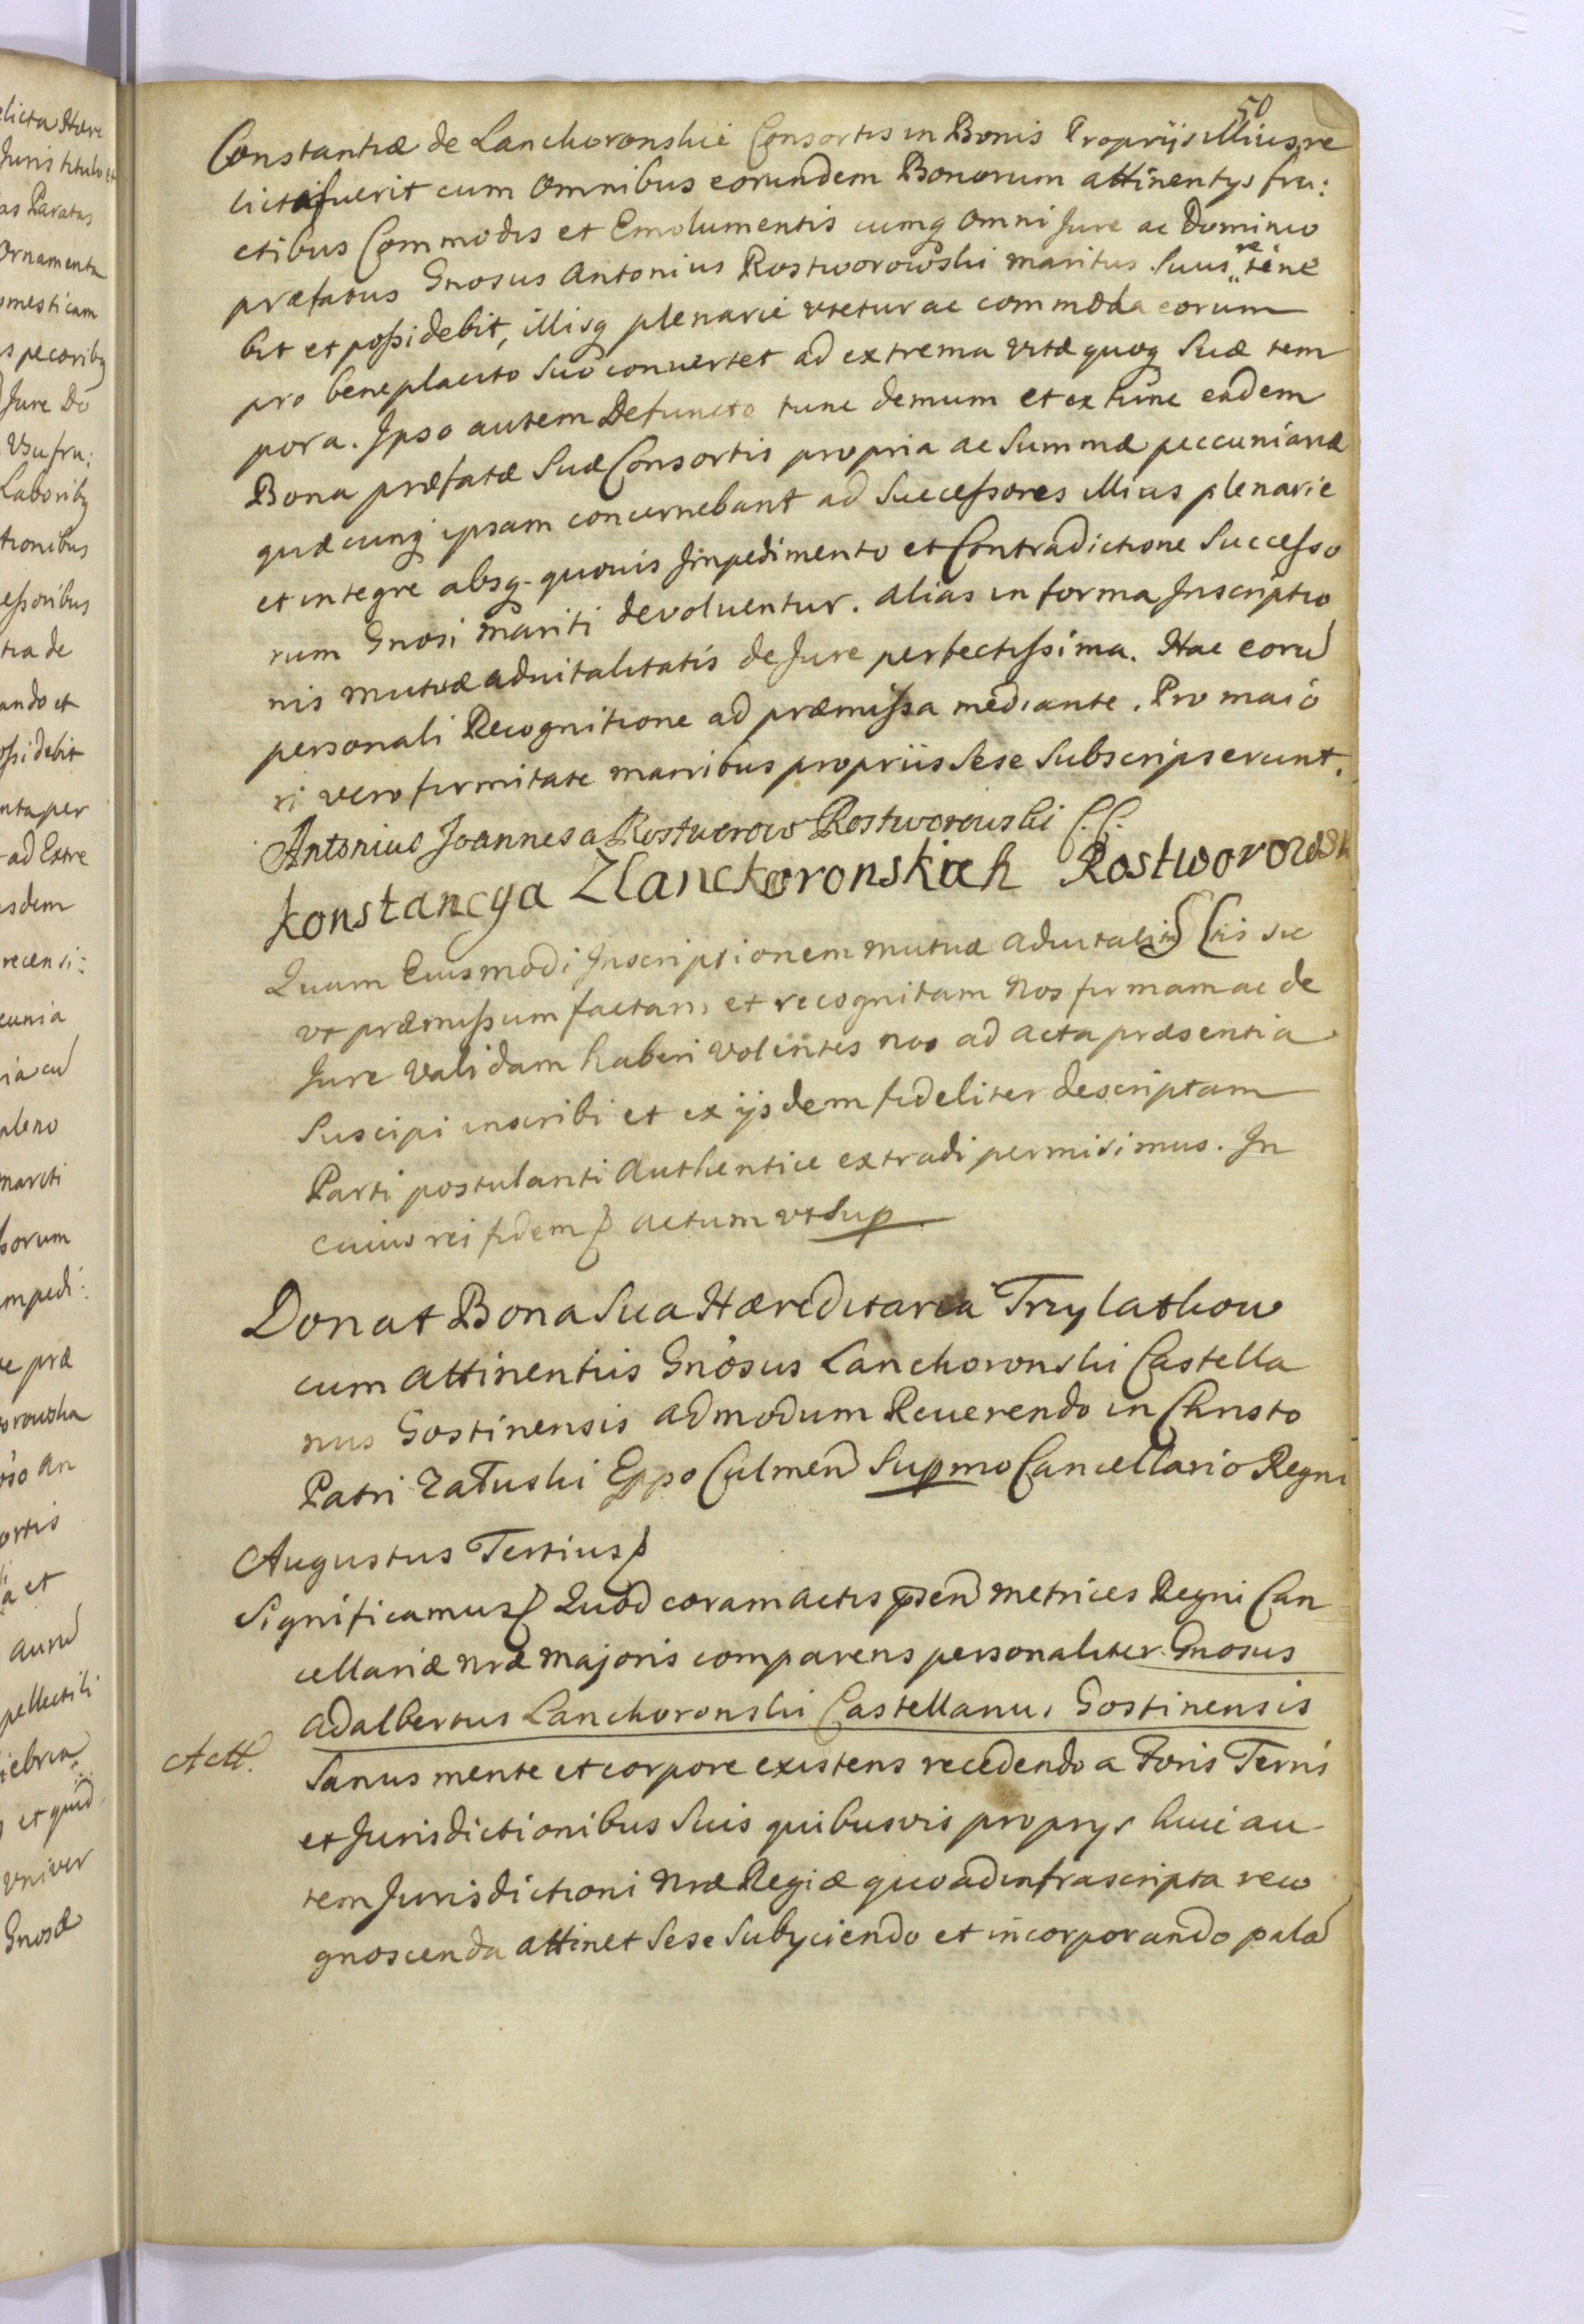 50
Constantiæ de Lanckoronskie Consortis in Bonis Proprijs illius re
licta fuerit cum Omnibus eorundem Bonorum attinentijs fru:
ctibus Commodis et Emolumentis cumq Omni Jure ac Dominio
præfatus Gnosus Antonius Rostworowski maritus Suus tene
bit et possidebit, illisq plenarie vtetur ac commoda eorum
pro beneplacito Suo conuertet ad extrema vitæ quoq Suæ tem
pora. Ipso autem Defuncto tunc demum et ex tunc eadem
Bona præfatæ Suæ Consortis propria ac Summæ peccuniariæ
quæcunq ipsam concernebant ad Successores illius plenarie
et integre absq quouis Impedimento et Contradictione Successo
rum Gnosi Mariti devoluentur. Alias in forma Inscriptio
nis mutuæ aduitalitatis de Jure perfectissima. Hac eorũ
personali Recognitione ad præmissa mediante. Pro maio
ri vero firmitate manibus propriis Sese Subscripserunt.
Antonius Joannes a Rostworow Rostworowski
Konstancya Zlanckoronskich Rostworowsk
Quam Eiusmodi Inscriptionem mutuæ aduitalitatis sic
vt præmissum factam et recognitam Nos firmam ac de
Jure validam haberi volentes nos ad acta præsentia
Suscipi inscribi et ex ijsdem fideliter descriptam
Parti postulanti Authentice extradi permisimus. In
cuius rei fidem actum vt sup
Donat Bona Sua Hæreditaria Trzylatkow
cum attinentiis Gnosus Lanckoronski Castella
nus Gostinensis admodum Reuerendo in Christo
Patri Załuski Eppo Culmen Supmo Cancellario Regni
Augustus Tertius
Significamus Quod coram actis psen metrices Regni Can
cellariæ nræ Majoris comparens personaliter Gnosus
Adalbertus Lanckoronski Castellanus Gostinensis
Actt.
Sanus mente et corpore existens recedendo a Foris Terris
et Jurisdictionibus Suis quibusvis proprijs huic au
tem Jurisdictioni Nræ Regiæ quo ad infrascripta reco
gnoscenda attinet Sese Subyciendo et incorporando palã